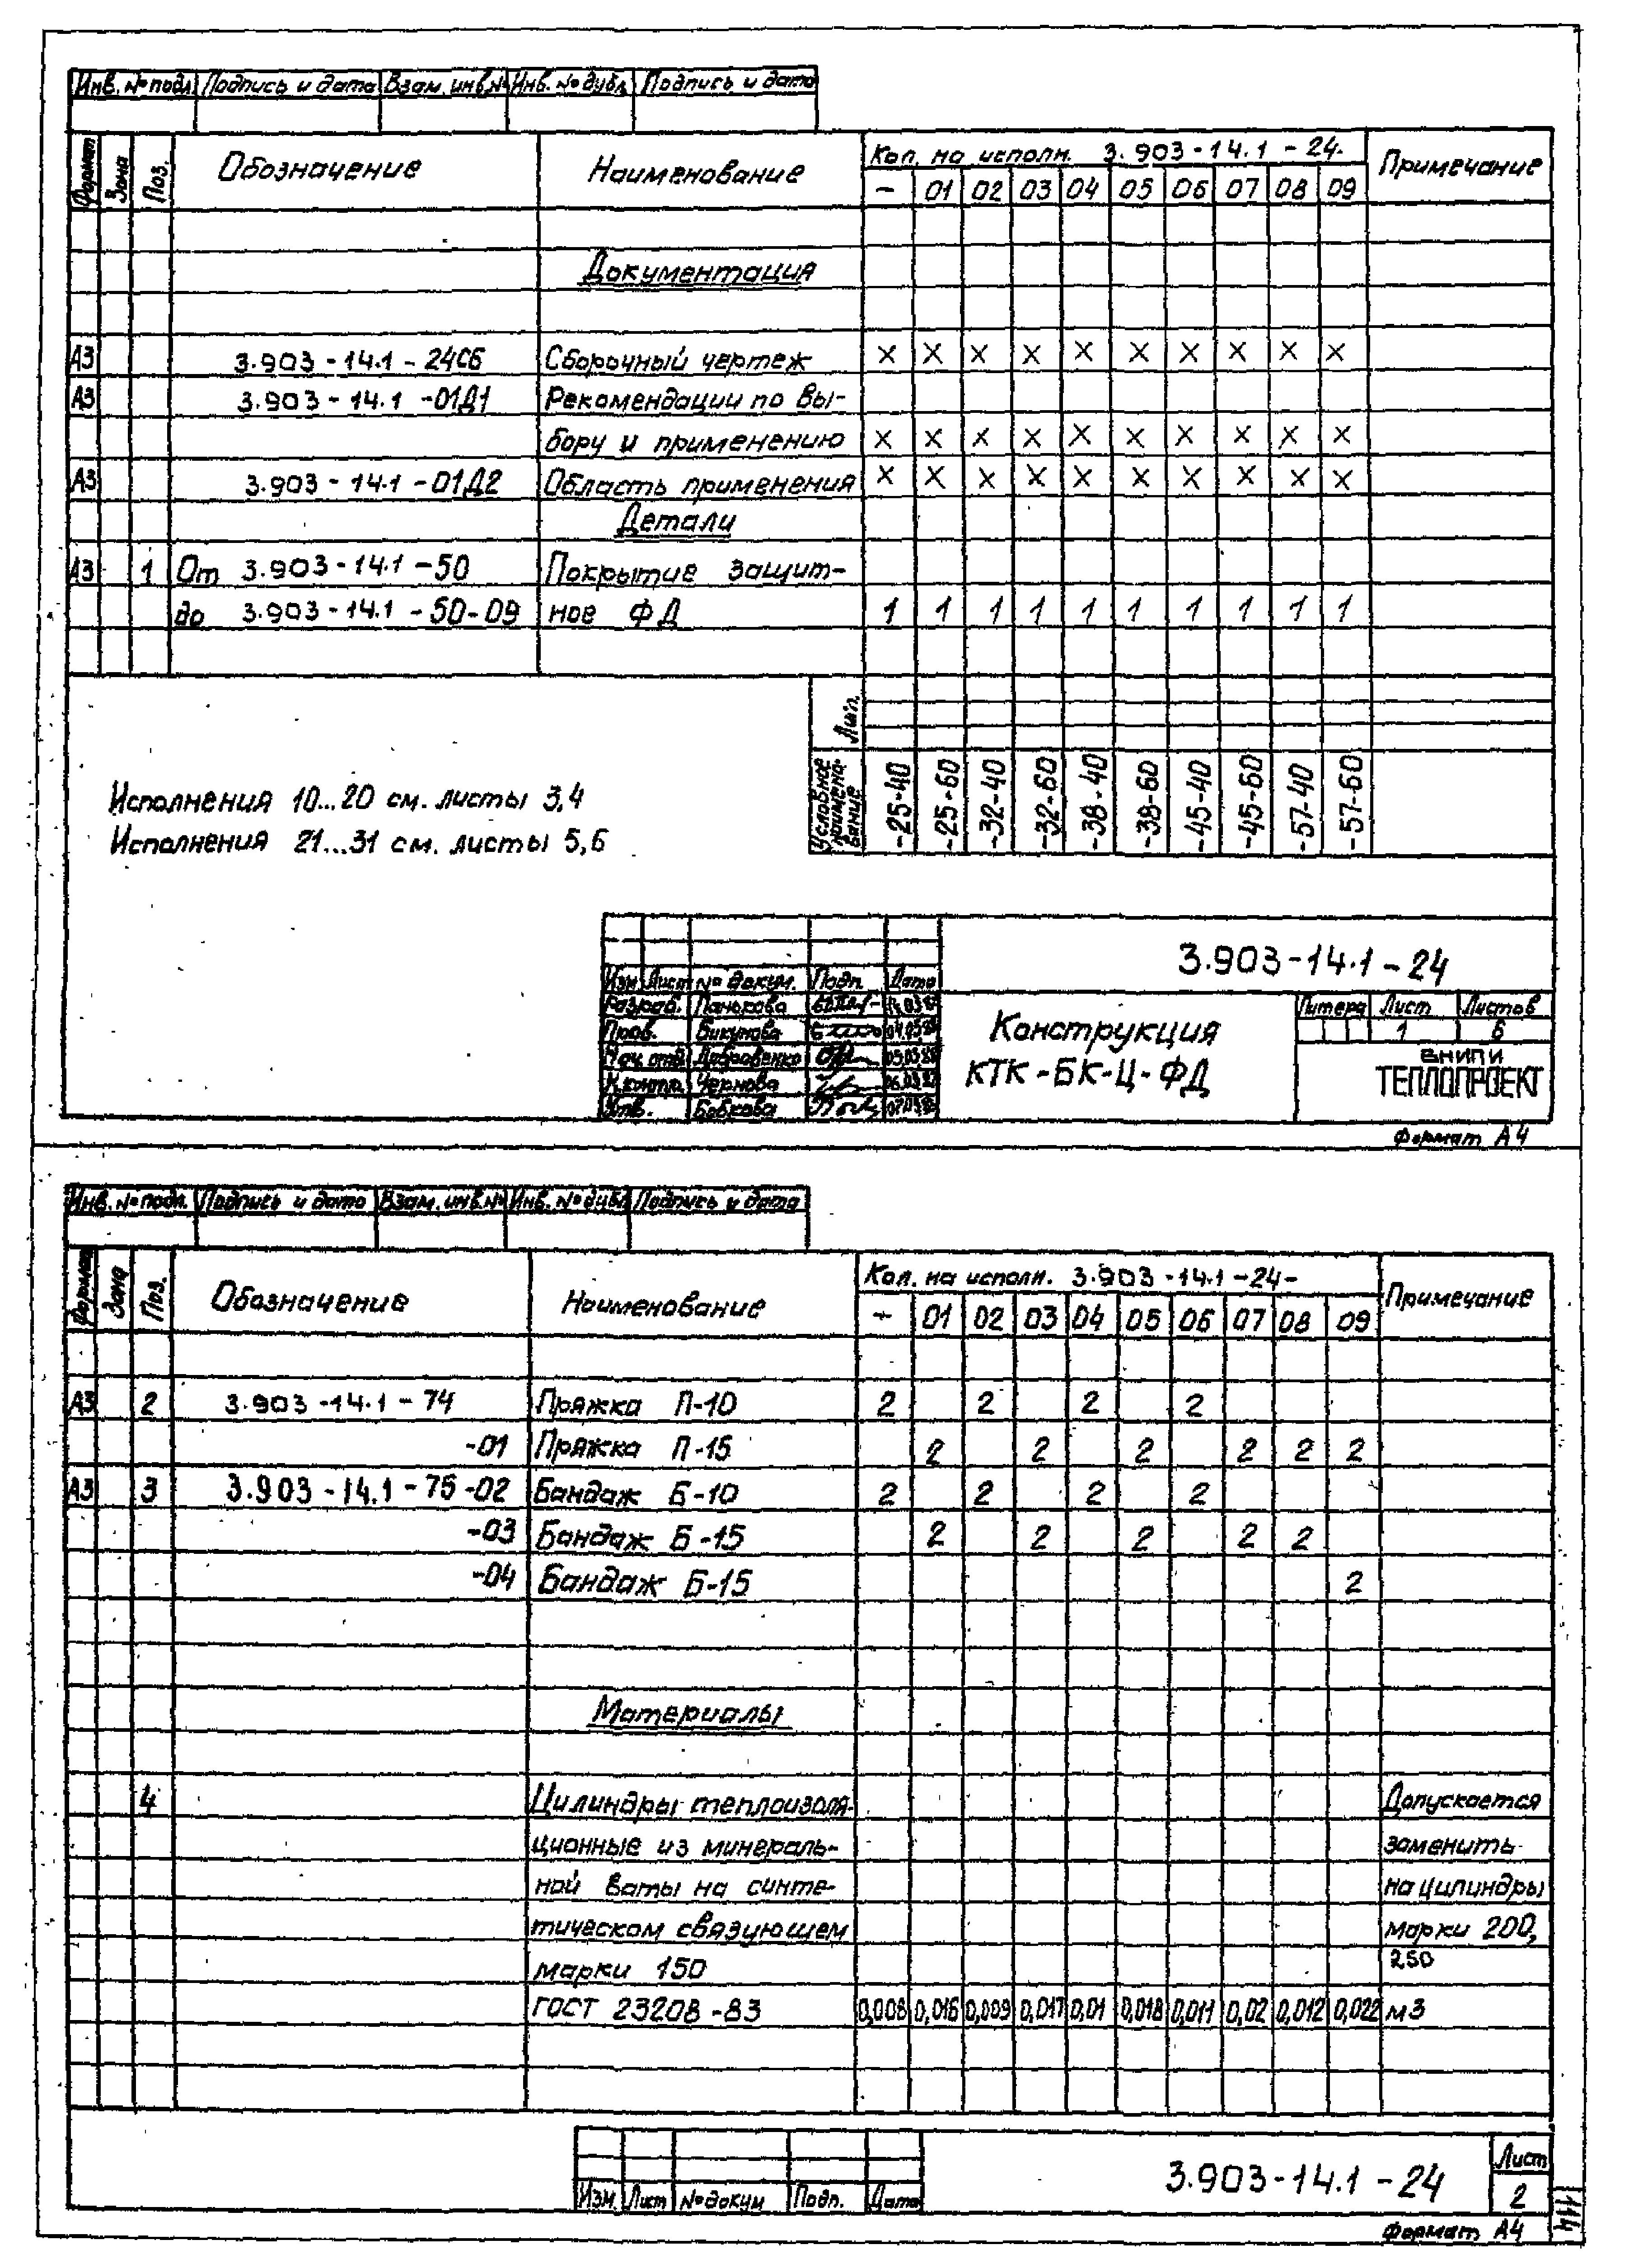 Инв. № подл. Подпись и дата Взам. инв. № Инв. № дубл. Подпись и дата
Формат Зона Поз. Обозначение Наименование Кол. на исполн. 3.903-14.1-24- Примечание
- 01 02 03 04 05 06 07 08 09
Документация
А3 3.903-14.1-24СБ Сборочный чертеж × × × × × × × × × ×
А3 3.903-14.1-01Д1 Рекомендации по вы-
бору и применению × × × × × × × × × ×
А3 3.903-14.1-01Д2 Область применения × × × × × × × × × ×
Детали
А3 1 От 3.903-14.1-50 Покрытие защит-
до 3.903-14.1-50-09 ное ФД 1 1 1 1 1 1 1 1 1 1
Лит.
Условное наименование -25-40 -25-60 -32-40 -32-60 -38-40 -38-60 -45-40 -45-60 -57-40 -57-60
Исполнения 10...20 см. листы 3,4
Исполнения 21...31 см. листы 5,6
3.903-14.1-24
Изм Лист № докум. Подп. Дата
Разраб. Панюкова
Пров. Викулова
Нач. отд.
Н.контр. Чернова
Утв. Бобкова
Конструкция
КТК-БК-Ц-ФД
Литера Лист Листов
1 6
ВНИПИ
ТЕПЛОПРОЕКТ
Формат А4
Инв. № подл. Подпись и дата Взам. инв. № Инв. № дубл. Подпись и дата
Формат Зона Поз. Обозначение Наименование Кол. на исполн. 3.903-14.1-24- Примечание
- 01 02 03 04 05 06 07 08 09
А3 2 3.903-14.1-74 Пряжка П-10 2 2 2 2
-01 Пряжка П-15 2 2 2 2 2 2
А3 3 3.903-14.1-75-02 Бандаж Б-10 2 2 2 2
-03 Бандаж Б-15 2 2 2 2 2
-04 Бандаж Б-15 2
Материалы
4 Цилиндры теплоизоля- Допускается
ционные из минераль- заменить
ной ваты на синте- на цилиндры
тическом связующем марки 200,
марки 150 250
ГОСТ 23208-83 0,008 0,016 0,009 0,017 0,01 0,018 0,011 0,02 0,012 0,022 м3
3.903-14.1-24
Лист
2
Изм. Лист № докум Подп. Дата
Формат А4
114